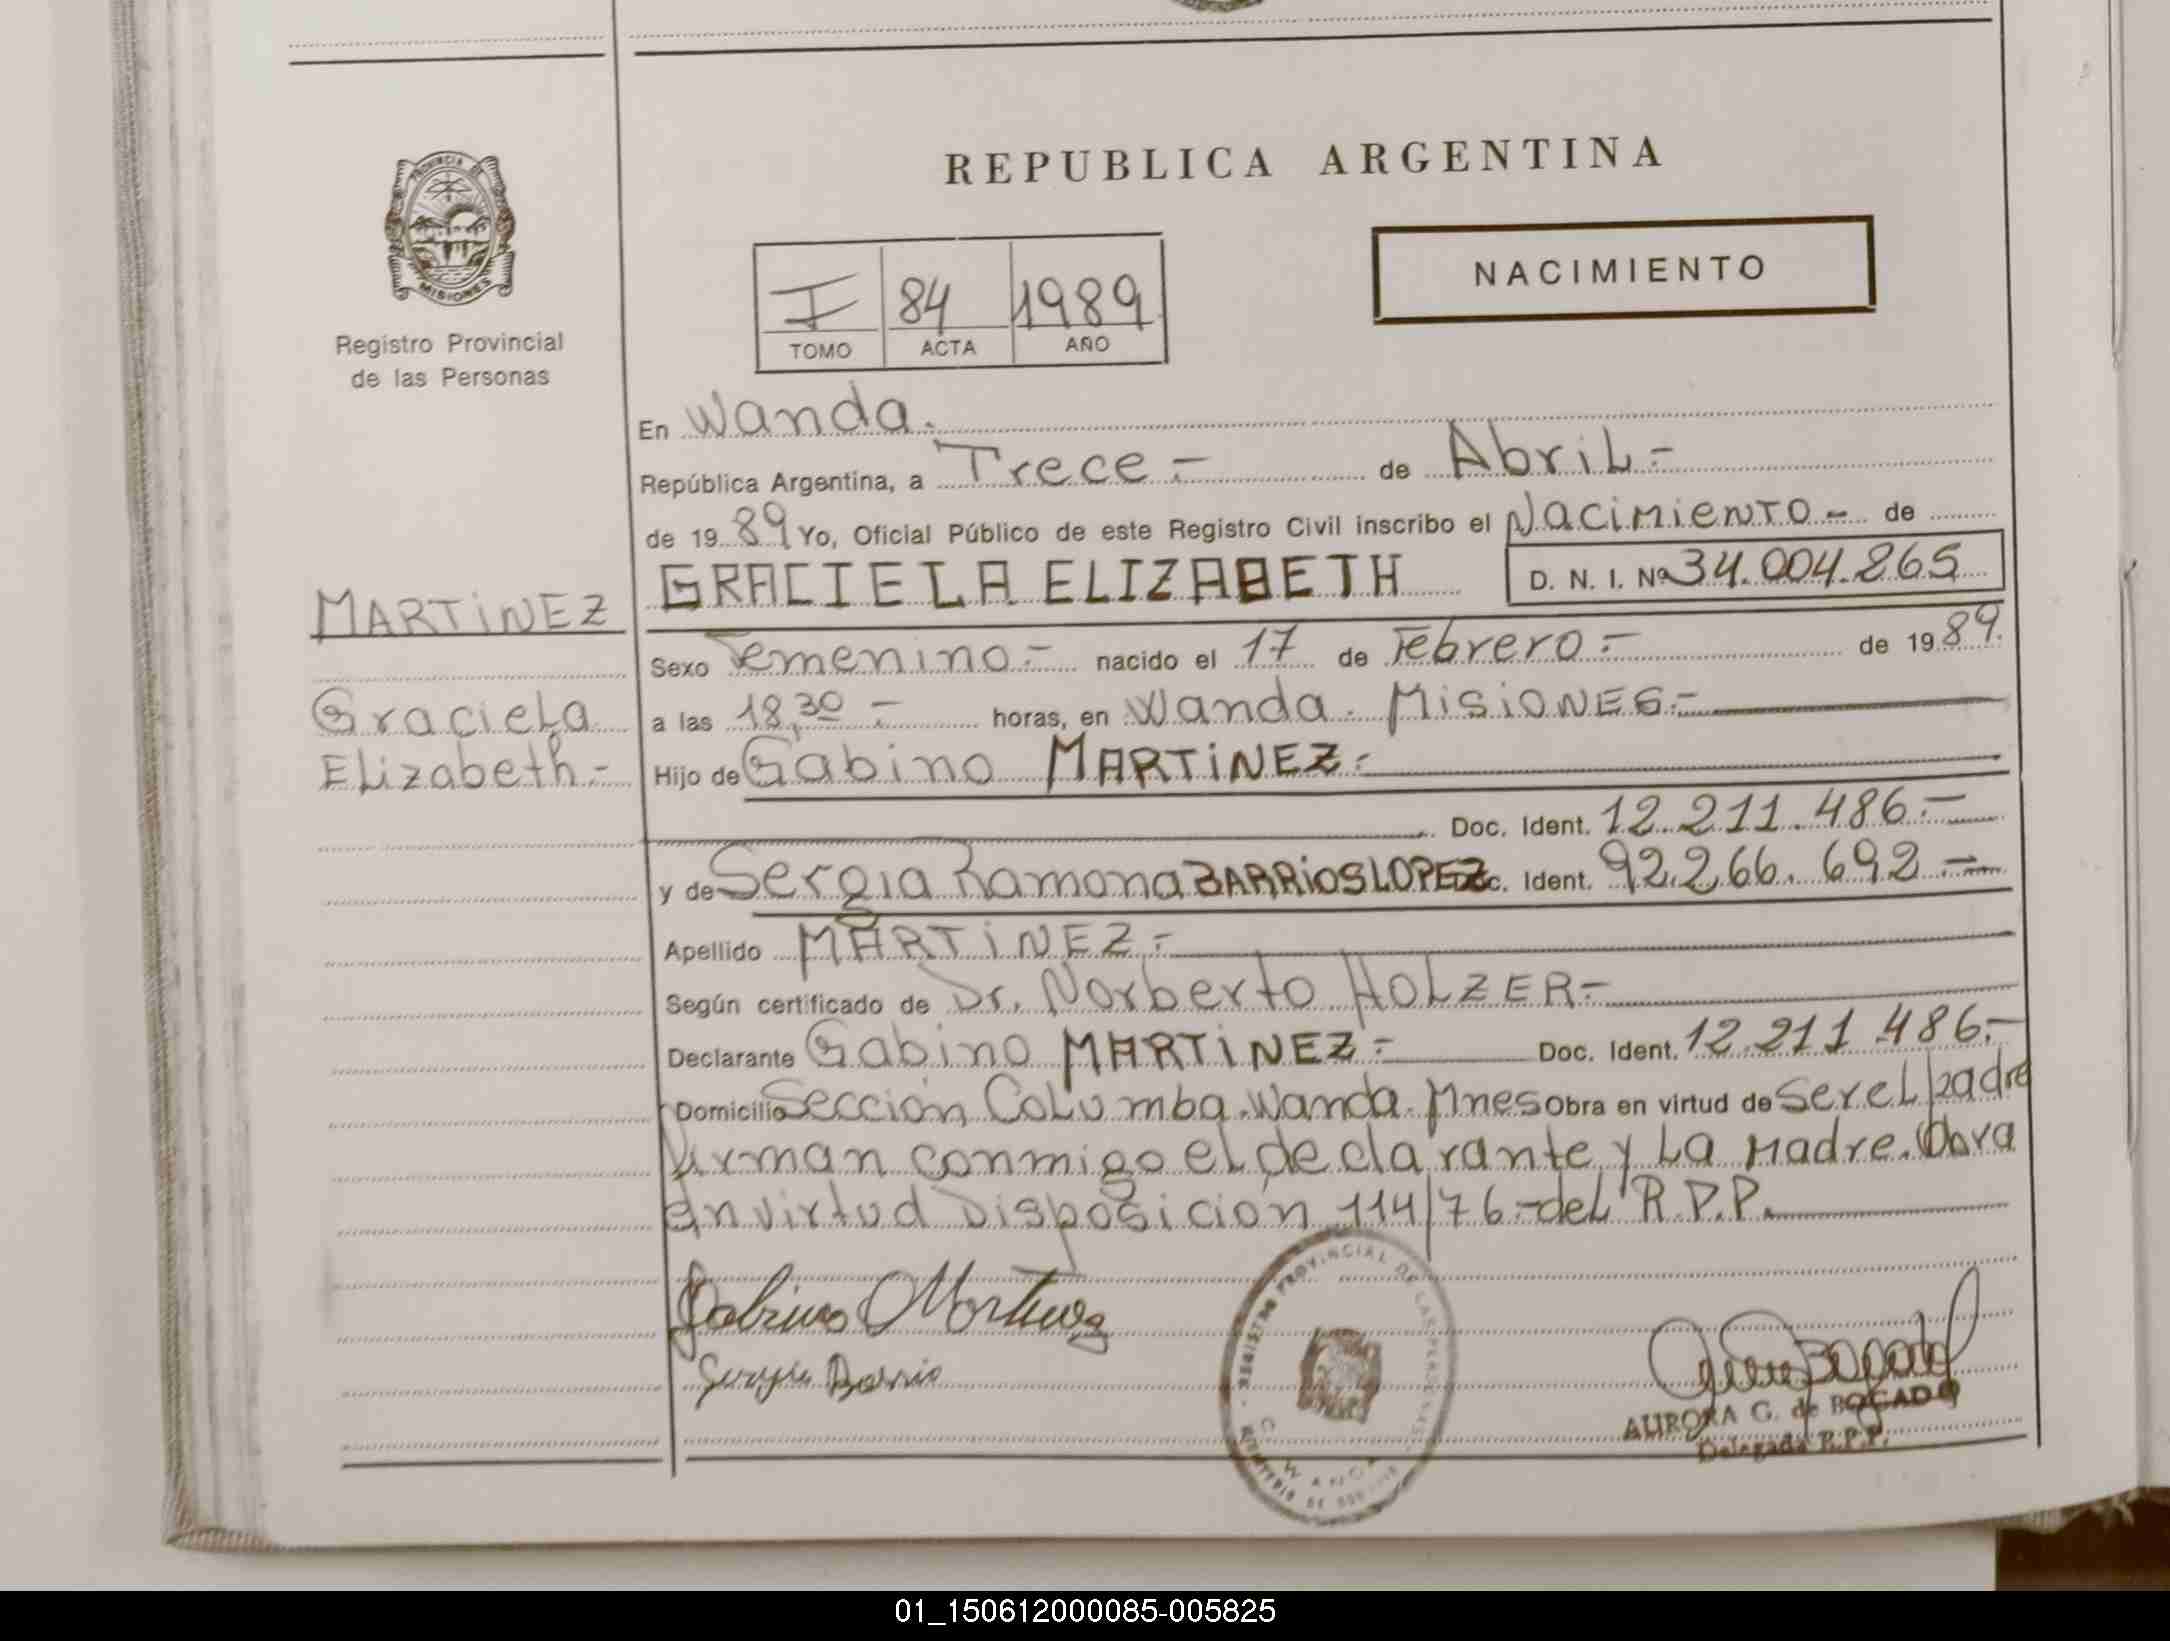 PROVINCIA DE
MISIONES
Registro Provincial
de las Personas
REPUBLICA ARGENTINA
NACIMIENTO
I 84 1989
TOMO ACTA AÑO
En Wanda.
República Argentina, a Trece.- de Abril.-
de 1989 Yo, Oficial Público de este Registro Civil inscribo el Nacimiento - de
GRACIELA ELIZABETH D. N. I. Nº 34.004.265
MARTINEZ
Sexo Femenino.- nacido el 17 de Febrero.- de 1989.
Graciela
a las 18,30.- horas, en Wanda. MisiONES.-
Elizabeth.-
Hijo de Gabino MARTiNEZ.-
Doc. Ident. 12.211.486.-
y de Sergia Ramona BARRiOS LOPEZ Doc. Ident. 92.266.692.-
Apellido MARTiNEZ.-
Según certificado de Dr. Norberto HOLZER-
Declarante Gabino MARTiNEZ.- Doc. Ident. 12.211.486.-
Domicilio Sección Columba. Wanda. Mnes Obra en virtud de Ser el padre
Firman conmigo el declarante y La Madre. Obra
En virtud Disposición 114/76.-del R.P.P.
Gabino Martinez
Sergia Barrio
REGISTRO PROVINCIAL DE LAS PERSONAS
WANDA
MINISTERIO DE GOBIERNO
AURORA G. de BOGADO
Delegada R.P.P.
01_150612000085-005825